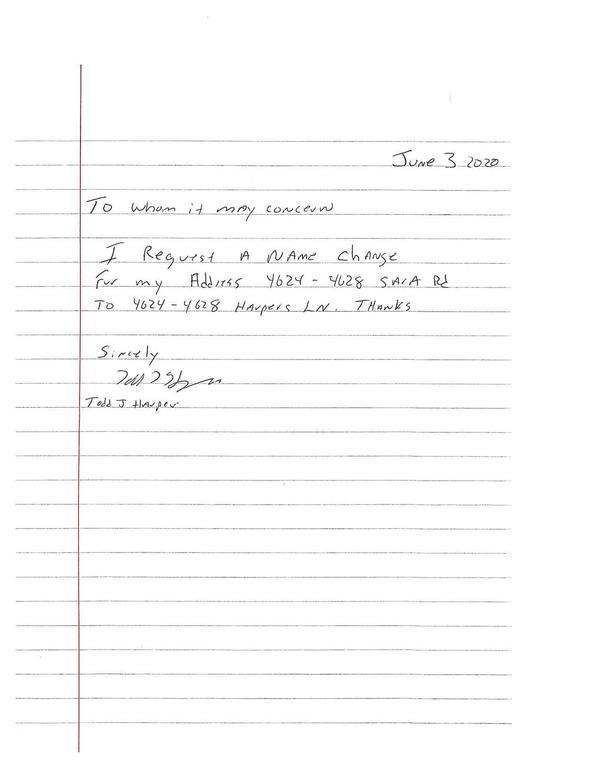 June 3 2020
To whom it may concern
I Request A Name Change
For my Address 4624 - 4628 SAIA Rd
To 4624 - 4628 Harpers LN. THANKS
Sincely
Todd J Harper